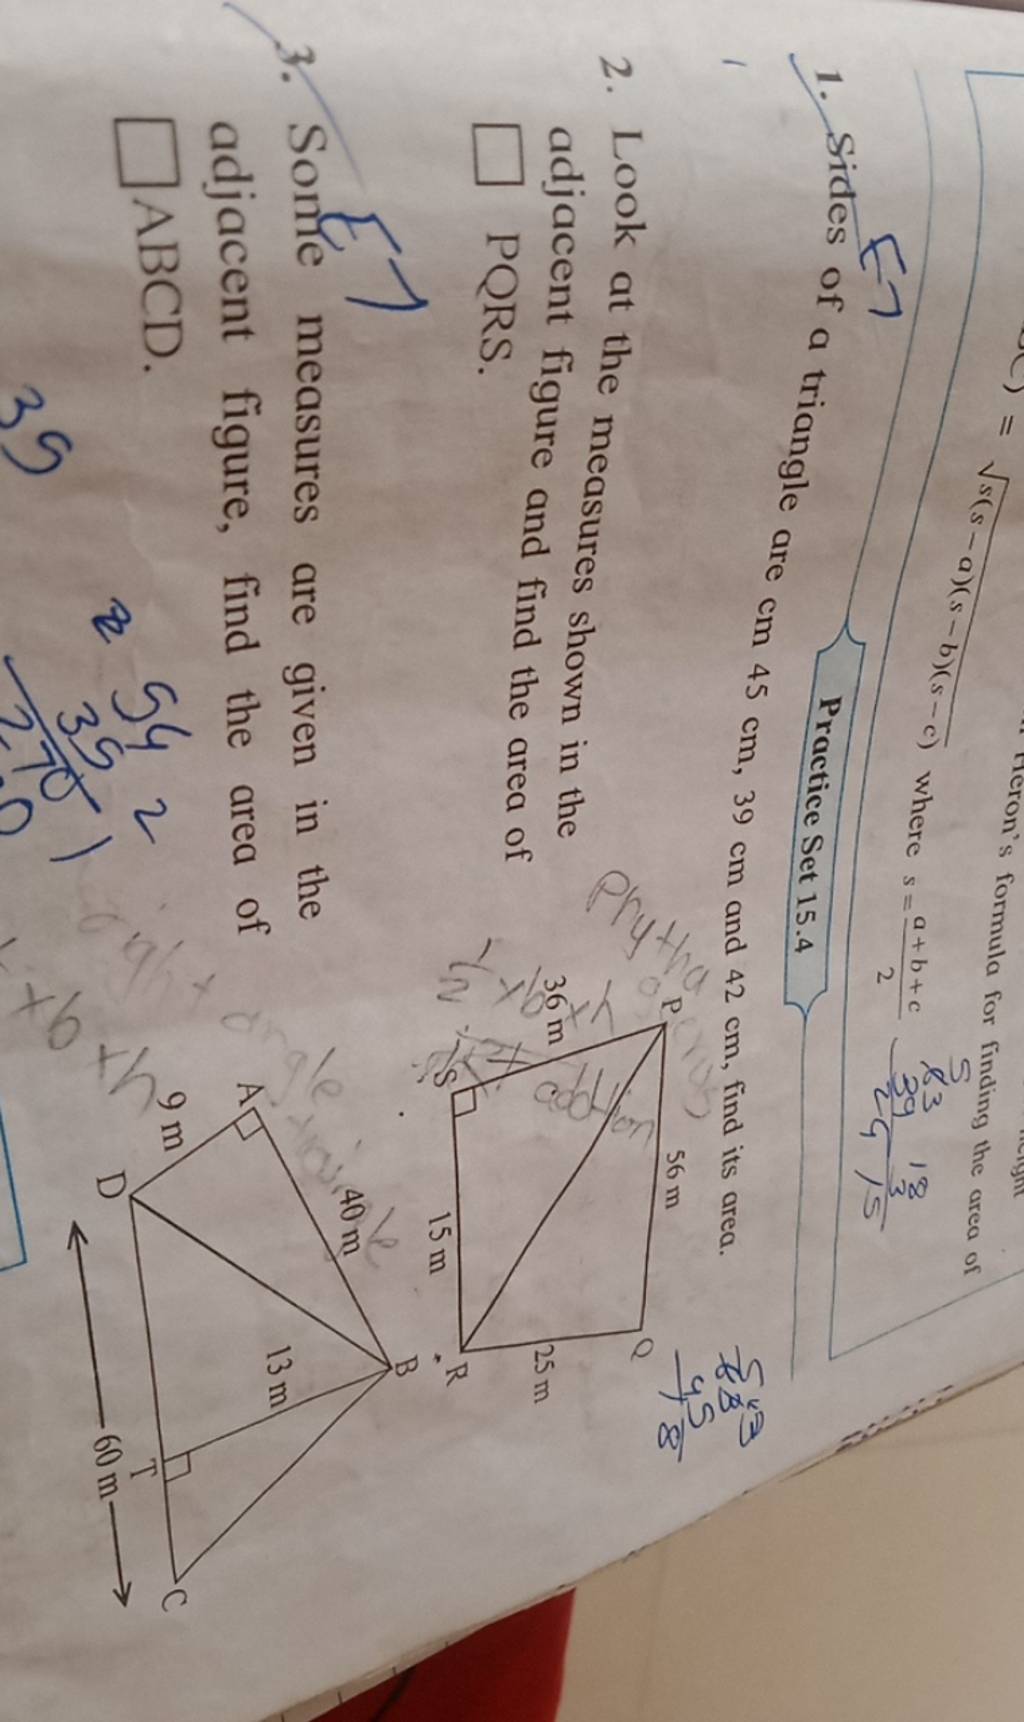 Heron's formula for finding the area of
= √s(s – a)(s – b)(s – c) where s = a + b + c / 2
Practice Set 15.4
1. Sides of a triangle are cm 45 cm, 39 cm and 42 cm, find its area.
2. Look at the measures shown in the
adjacent figure and find the area of
□ PQRS.
P
56 m
Q
36 m
25 m
S
15 m
R
3. Some measures are given in the
adjacent figure, find the area of
□ABCD.
A
40 m
B
9 m
13 m
D
T
C
60 m
39
54
39